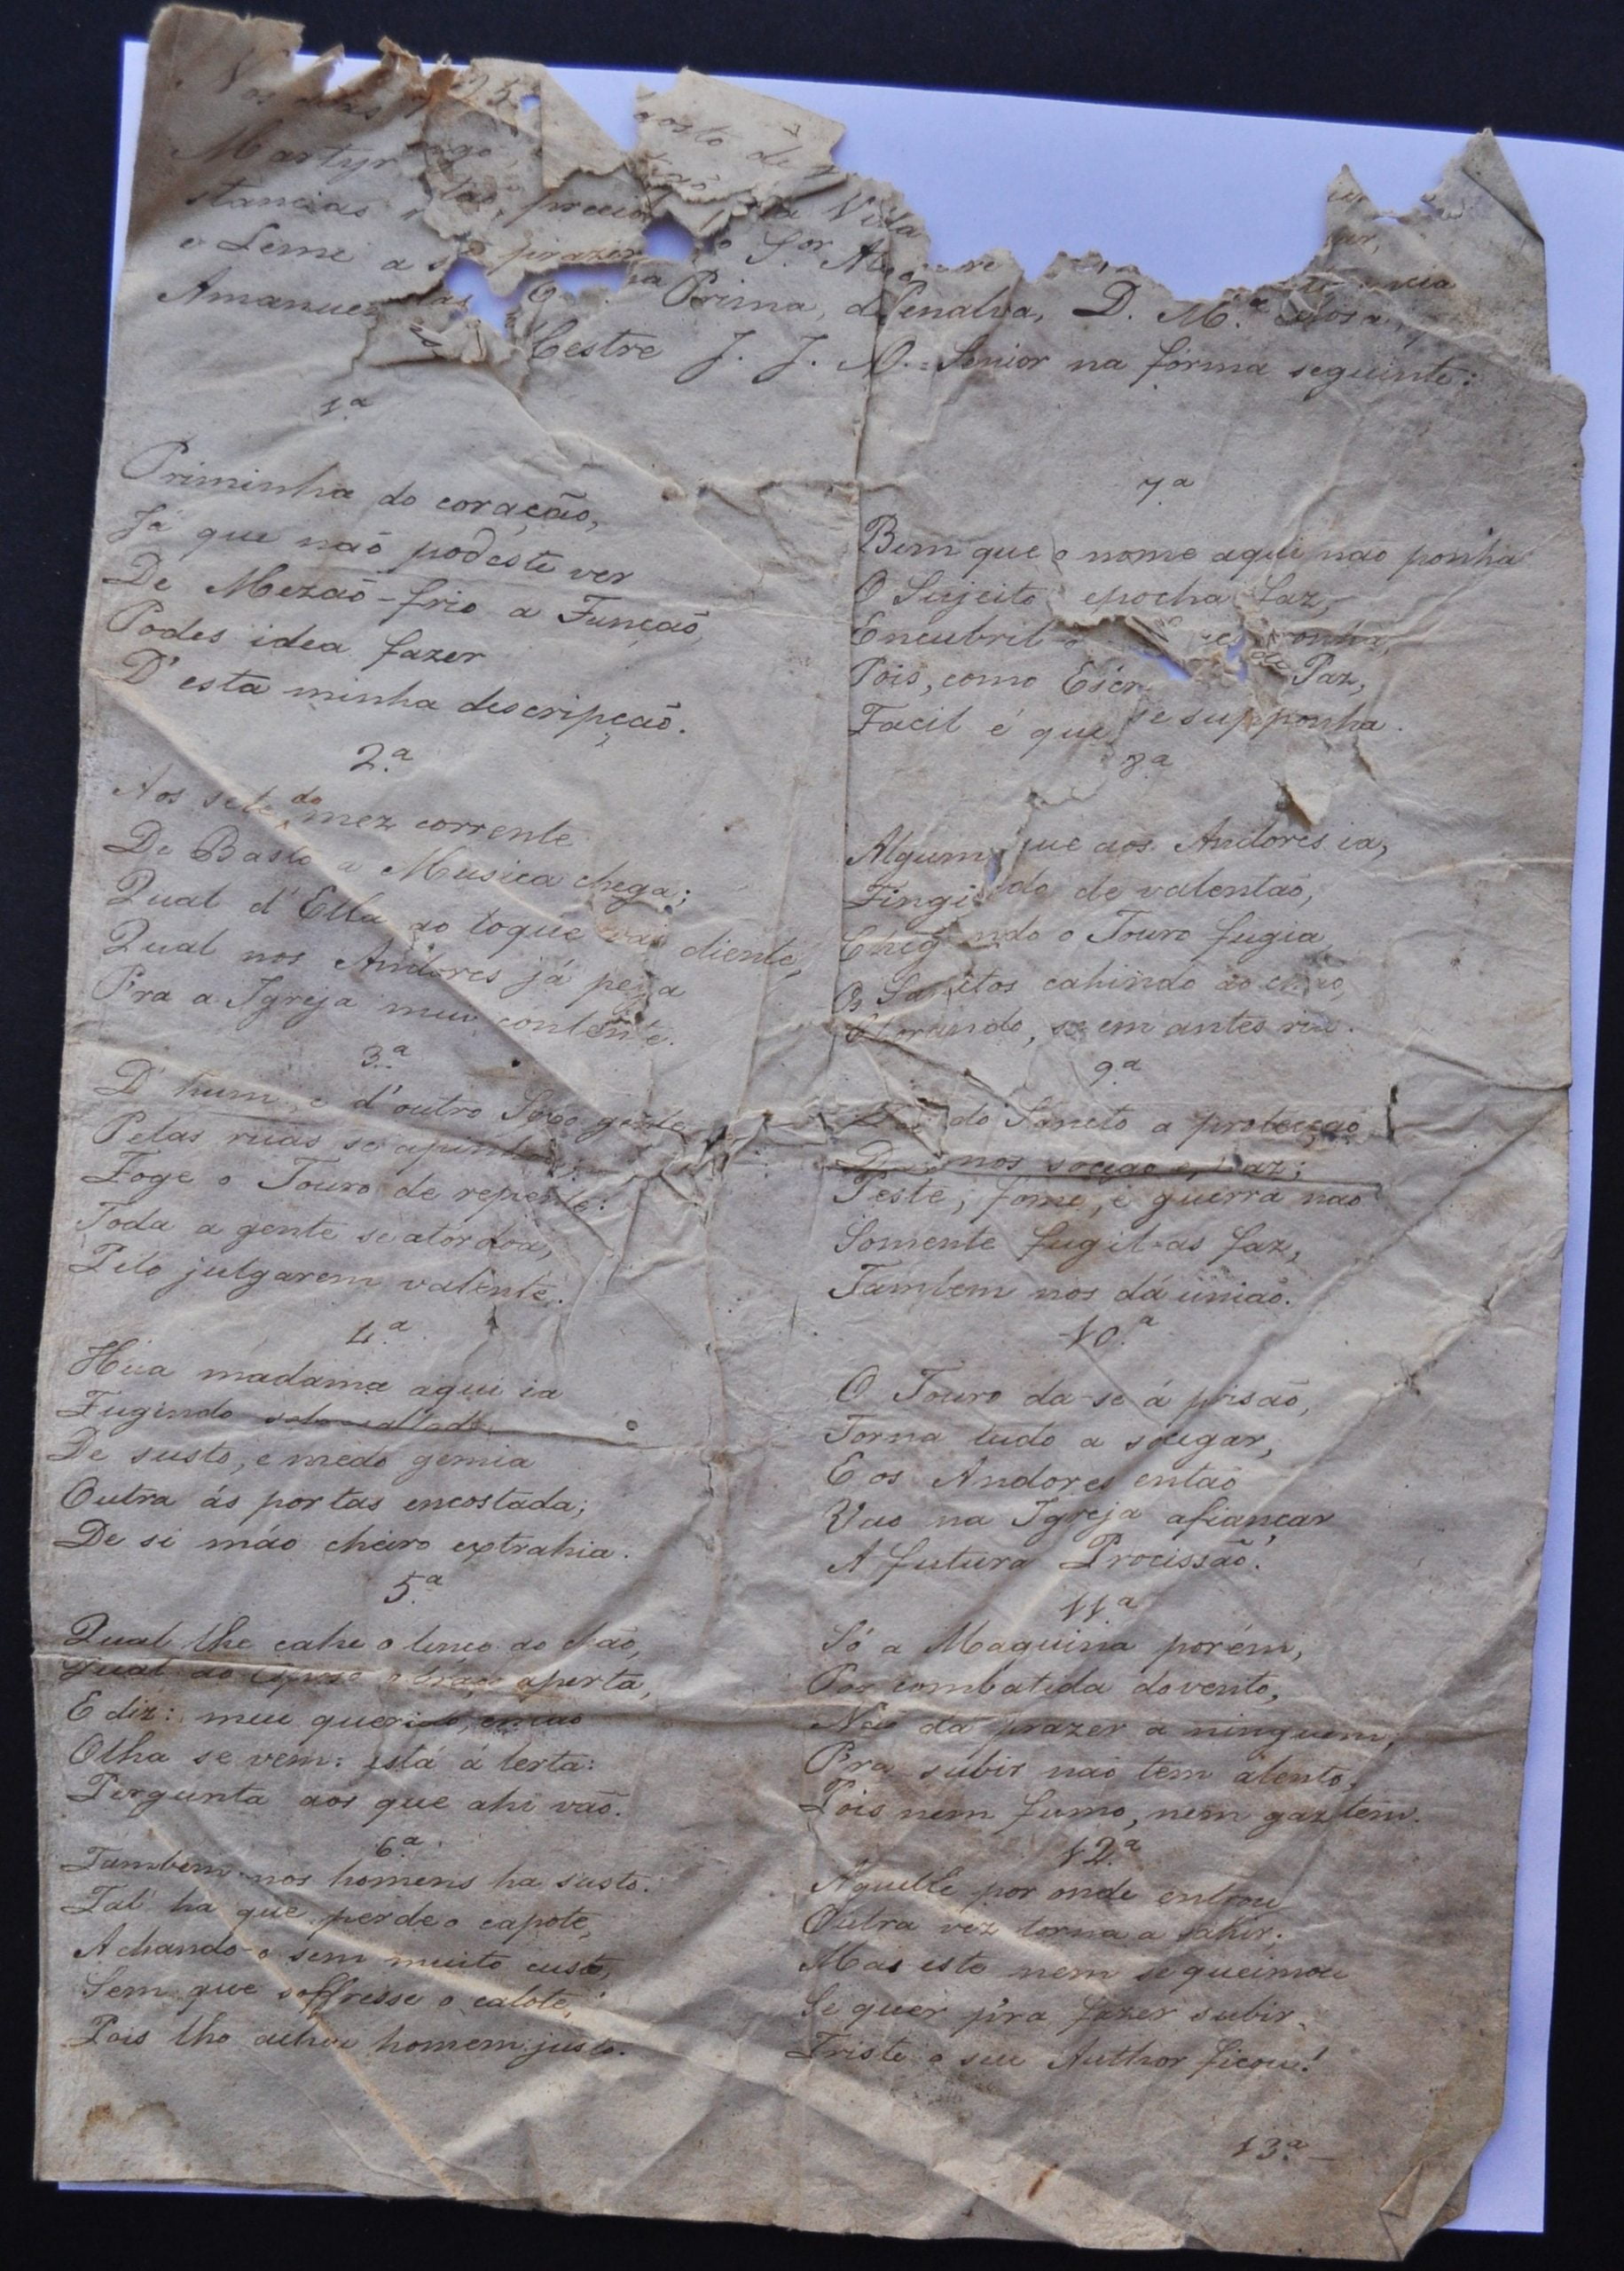 Nos dias
osto de
Martyr
stancias precio Villa
e Leme a prazer o S.or
Amanuen Prima, d Penalva, D. M.ª
Cestre J. J. Senior na fórma seguinte:
1.ª
Priminha do coração,
Já que naõ podéste ver
De Mezaõ-frio a Funcaõ,
Podes idea fazer
D'esta minha descripçaõ.
2.ª
Aos sete do mez corrente
De Basto a Musica chega;
Qual d'Ella ao toque vai diente,
Qual nos Andores já pega
P'ra a Igreja mui contente.
3.ª
D'hum, e d'outro Sexo gente
Pelas ruas se apinha;
Foge o Touro de repente:
Toda a gente se atordoa,
Pelo julgarem valente.
4.ª
Hũa madama aqui ia
Fugindo
De susto, e medo gemia
Outra ás portas encostada;
De si máo cheiro extrahia.
5.ª
Qual lhe cahe o lenço ao chão,
Qual ao Esposo o braço aperta,
E diz: meu querido, então
Olha se vem: está á lerta:
Pergunta aos que ahi vão.
6.ª
Tambem nos homens ha susto:
Tal ha que perde o capote,
Achando-o sem muito custo,
Sem que soffresse o calote,
Pois lho achou homem justo.
7.ª
Bem que o nome aqui nao ponha
O Sujeito epocha faz,
Encubril-o onha,
Pois, como Escr de Paz,
Facil é que se supponha.
8.ª
Algum que aos Andores ia,
Fingindo de valentaõ,
Chegando o Touro fugia
Os Sanctos cahindo ao chaõ,
Chorando, se em antes ria.
9.ª
do Sancto a protecçaõ
nos socego e paz;
Peste, fome, e guerra nao
Somente fugil-as faz,
Tambem nos dá uniaõ.
10.ª
O Touro da-se á prisaõ,
Torna tudo a socegar,
E os Andores entaõ
Vao na Igreja afiançar
A futura Procissaõ!
11.ª
Só a Maquina porém,
Por combatida do vento,
Naõ dá prazer a ninguem,
P'ra subir naõ tem alento,
Pois nem fumo, nem gaz tem.
12.ª
Aquelle por onde entrou
Outra vez torna a sahir.
Mas isto nem se queimou
Se quer p'ra fazer subir.
Triste o seu Author ficou!
13.ª